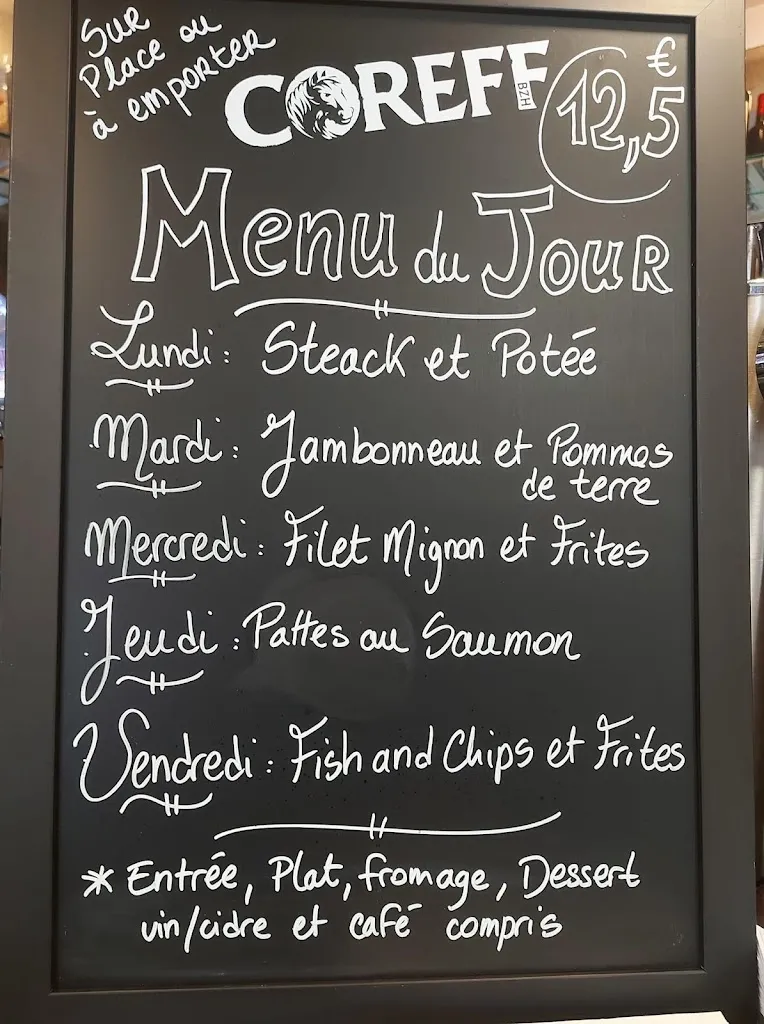 Sur
Place ou
à emporter
COREFF
BZH
12,5 €
Menu du Jour
Lundi : Steack et Potée
Mardi : Jambonneau et Pommes
de terre
Mercredi : Filet Mignon et Frites
Jeudi : Pattes au Saumon
Vendredi : Fish and Chips et Frites
* Entrée, Plat, fromage, Dessert
vin/cidre et café compris